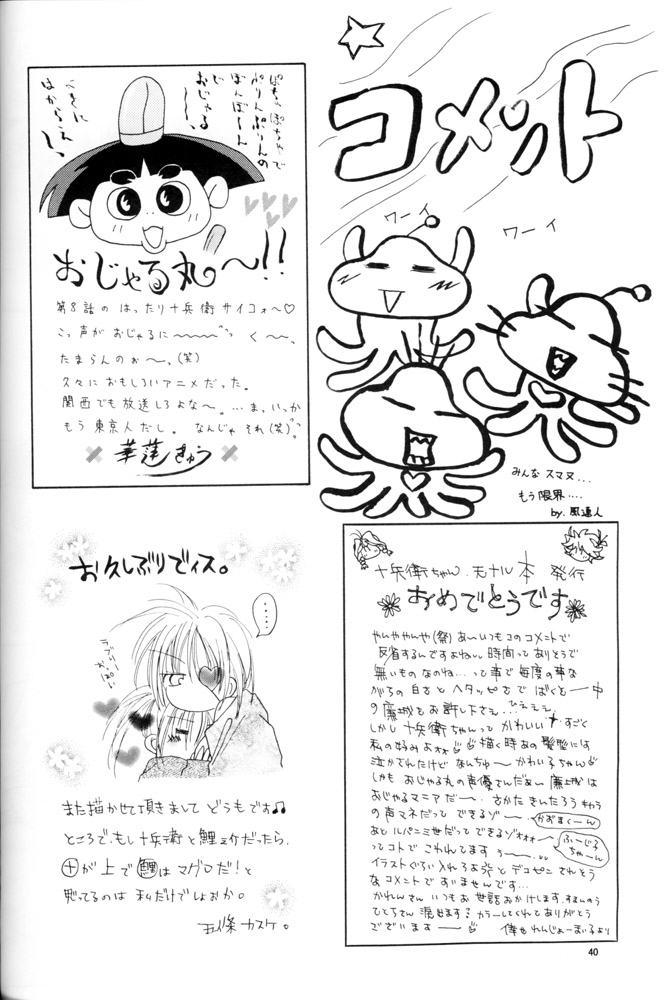 コメント
ワーイ
ワーイ
みんな スマヌ...
もう限界....
by. 風道人
ぽちゃぽちゃで
ぷりんぷりんの
ぼんぼーん
じゃ
おじゃる
おじゃる丸〜!!
第8話の はったり十兵衛 サイコォ〜♡
たまらんのぉ〜、(笑)
久々に おもしろいアニメだった。
関西でも放送しろよな〜。...ま、いっか
もう 東京人だし。 なんじゃ それ(笑)。
華蓮きゅう
お久しぶりでィス。
....
ラブリー
また描かせて頂きまして どうもです♫
ところで、もし十兵衛と鯉之介だったら、
㊉が上で鯉はマグロだ!と
思ってるのは 私だけでしょおか。
五條 カスケ。
十兵衛ちゃん 本 発行
おめでとうです
やんややんや(祭) あ〜いつもコのコメントで
反省するんですよねぃぃ 時間ってありそうで
無いものなのね...って事で 毎度の事な
がらの 白さと ヘタッピさで ばくと〜中
の 廉城を お許し下さぇ... ひぇぇぇ
しかし 十兵衛ちゃんって かわいい すごく
私の好みよ 描く時あの髪型には
泣かされたけど なんちゅ〜 かわい子ちゃん
しかも おじゃる丸の声優さんだぁぃ 廉城は
おじゃるマニアだ〜、さかた きんたろう キャラ
の声マネだって できるゾ〜
かおまくーん
あと ルパン三世だって できるゾ
ふーじ子
ちゃーん
ってコトで こわれてます
イラストぐらい 入れろよ と デコピン されそう
な コメント で すいませんです...
かれんさん いつも お世話 おかけします。
ひとちさん カラーしてくれて ありがとう
ございます〜
40